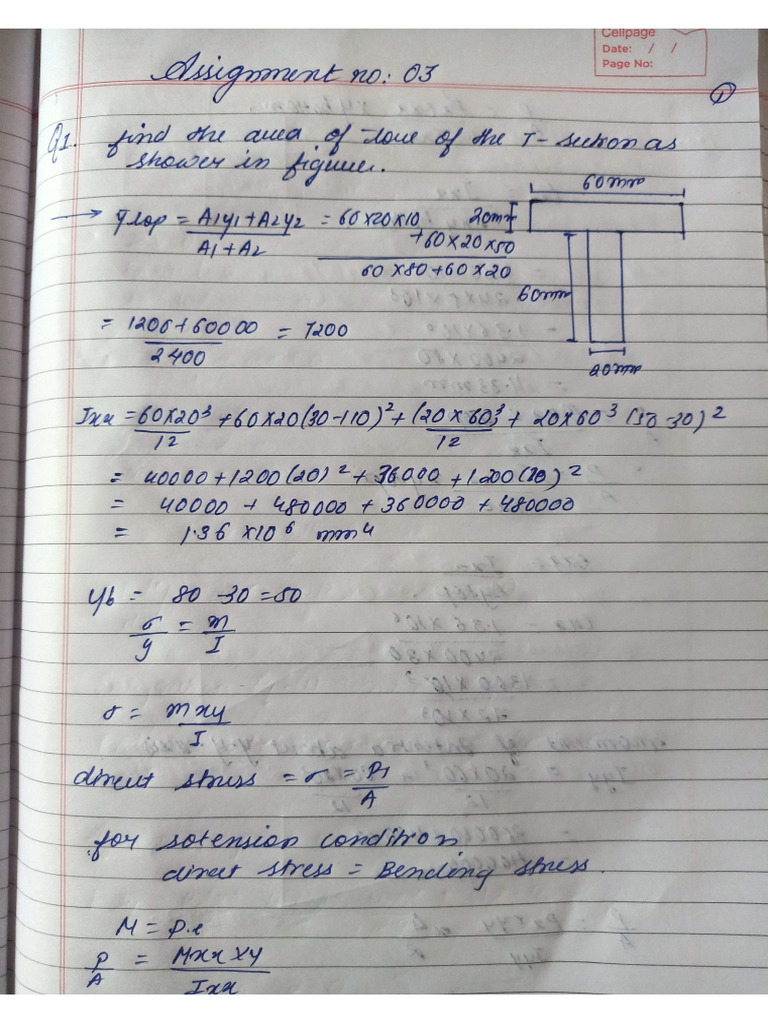 Cellpage
Date: / /
Page No:
Assignment no: 03
1
Q1. find the area of core of the T-section as
shower in figure.
60mm
→ ȳtop = A1y1+A2y2 / A1+A2 = 60x20x10 +60x20x50 / 60x80+60x20
20mm
60mm
20mm
= 1206+60000 / 2400 = 7200
Ixx = 60x20³/12 + 60x20(30-110)² + (20x60)³/12 + 20x60³(50-30)²
= 40000+1200(20)²+36000+1200(20)²
= 40000 + 480000 + 360000 + 480000
= 1.36 x10⁶ mm⁴
yb = 80 -30 = 50
σ/y = m/I
σ = m x y / I
direct stress = σ = P1/A
for sotension condition
direct stress = Bending stress.
M = P.e
P/A = Mxx x y / Ixx